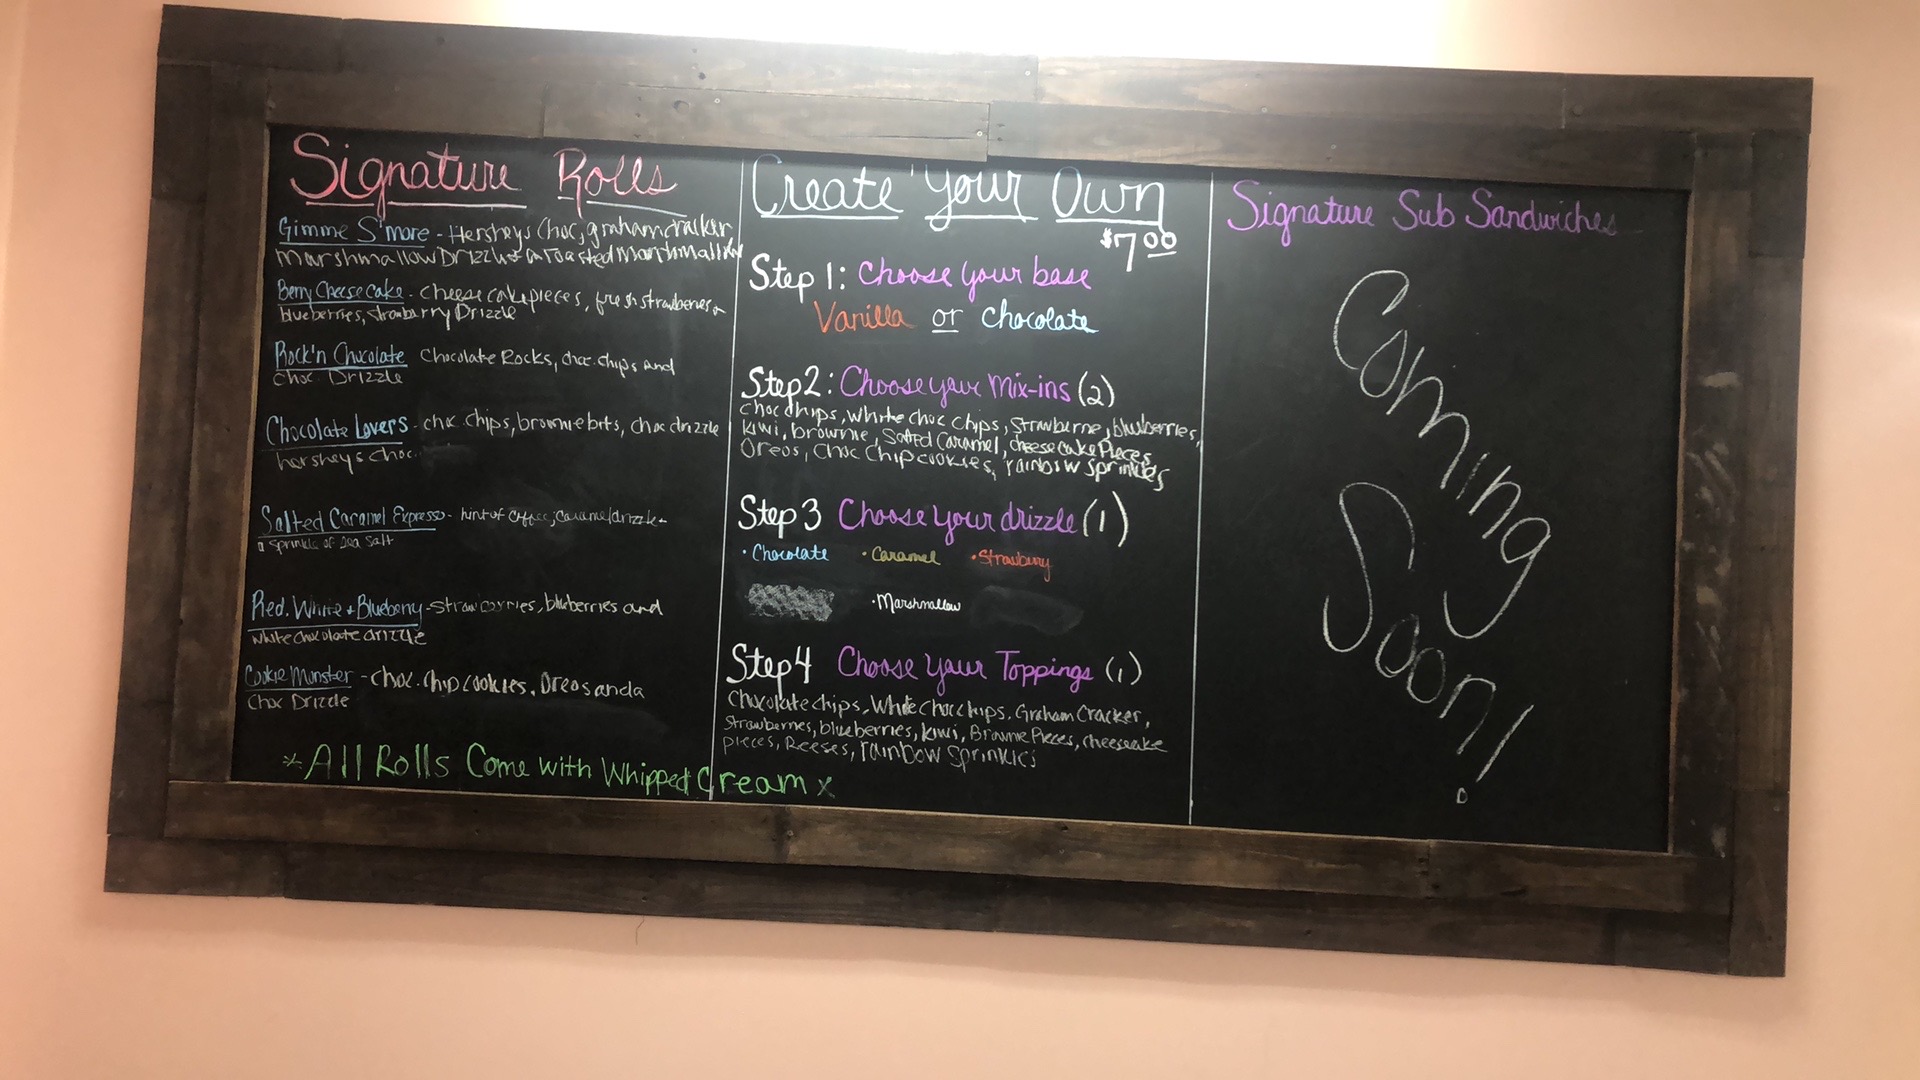 Signature Rolls
Gimme S'more - Hersheys Choc, grahamcracker
Marshmallow Drizzle + a Toasted Marshmallow
Berry Cheese Cake - cheese cake pieces, fresh strawberries +
blueberries, strawbarry Drizzle
Rock'n Chocolate Chocolate Rocks, choc. chips and
Choc. Drizzle
Chocolate Lovers - choc. chips, brownie bits, choc drizzle
hersheys choc.
Salted Caramel Expresso - hint of Coffee, Caramel drizzle +
a sprinkle of Sea Salt
Red. White + Blueberry - strawberries, blueberries and
White Chocolate drizzle
Cookie Monster - choc. chip cookies, Oreos and a
Choc Drizzle
*All Rolls Come with Whipped Cream x
Create Your Own
$7.00
Step 1: Choose your base
Vanilla or Chocolate
Step 2: Choose your Mix-ins (2)
choc chips, White choc chips, Strawberrie, blueberries,
kiwi, brownie, Salted Caramel, cheese cake Pieces
Oreos, Choc Chip cookies, rainbow sprinkles
Step 3 Choose Your drizzle (1)
· Chocolate · Caramel · Strawberry
· Marshmallow
Step 4 Choose Your Toppings (1)
Chocolate chips, White choc chips, Graham Cracker,
Strawberries, blueberries, kiwi, Brownie Pieces, cheesecake
pieces, Reeses, rainbow Sprinkles
Signature Sub Sandwiches
Coming
Soon!